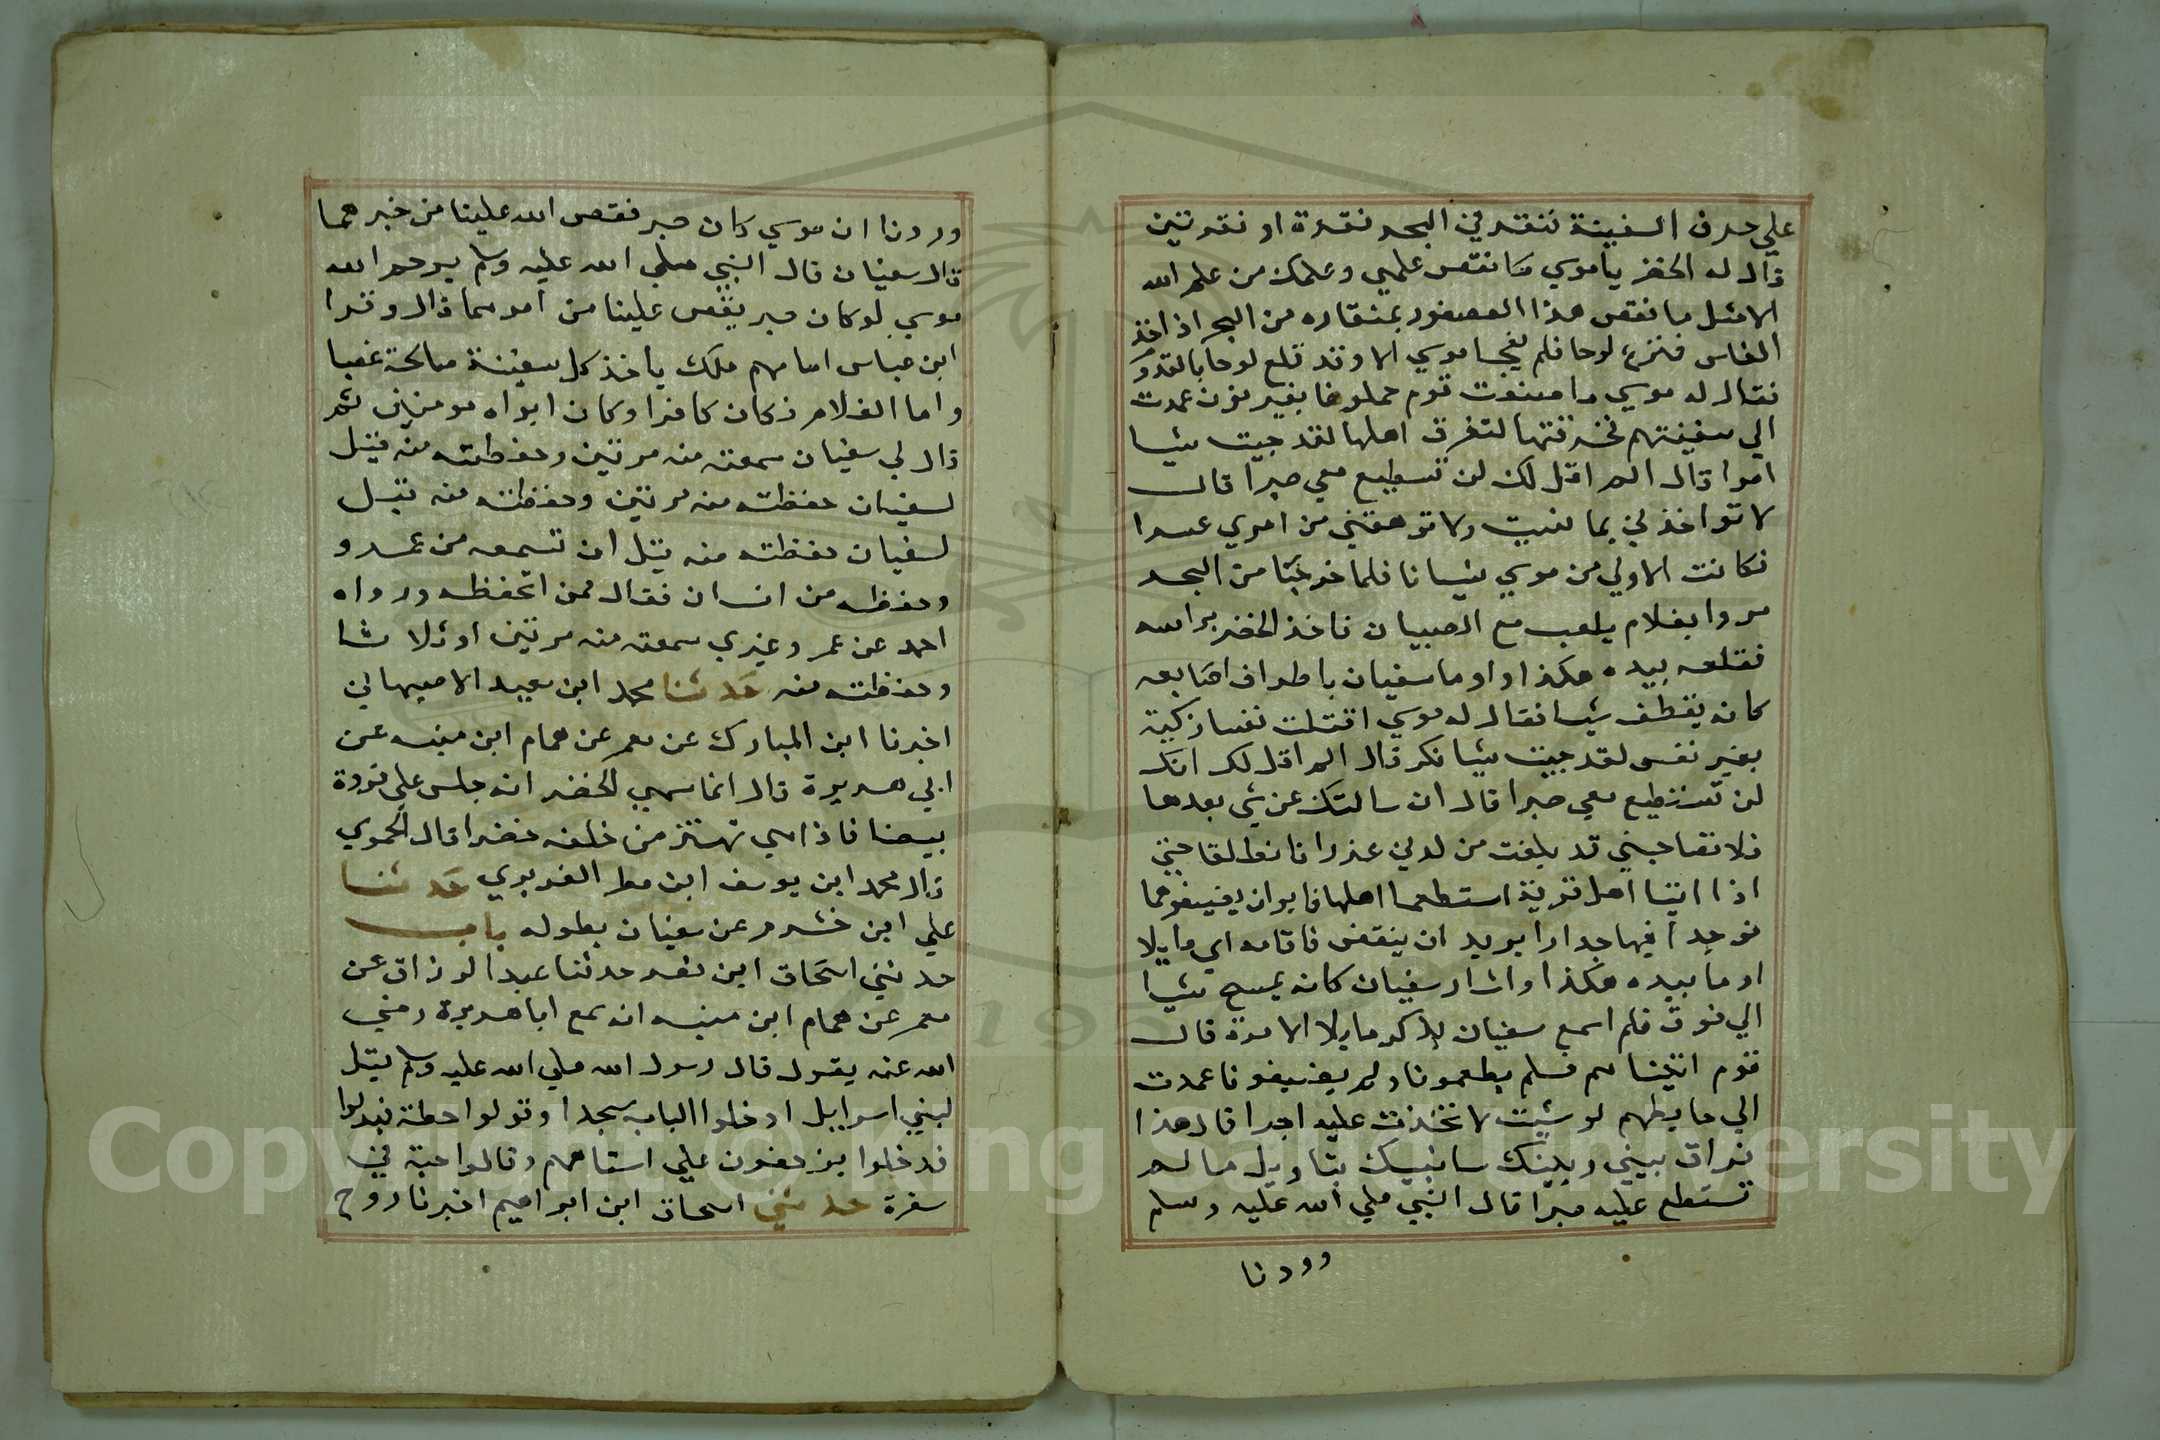 علي حرف السفينة فنقر في البحر نقرة او نقرتين
قال له الخضر يا موسي ما نقص علمي وعلمك من علم الله
الا مثل ما نقص هذا العصفور بمنقاره من البحر اذ اخذ
الفاس فنزع لوحا فلم يفجا موسي الا وقد قلع لوحا بالقدوم
فقال له موسي ما صنعت قوم حملونا بغير نول عمدت
الي سفينتهم فخرقتها لتغرق اهلها لقد جيت شيا
امرا قال الم اقل لك لن تستطيع معي صبرا قال
لا تواخذني بما نسيت ولا ترهقني من امري عسرا
فكانت الاولي من موسي نسيانا فلما خرجا من البحر
مروا بغلام يلعب مع الصبيان فاخذ الخضر براسه
فقلعه بيده هكذا واوما سفيان باطراف اصابعه
كانه يقطف شيا فقال له موسي اقتلت نفسا زكية
بغير نفس لقد جيت شيا نكر قال الم اقل لك انك
لن تستطيع معي صبرا قال ان سالتك عن شي بعدها
فلا تصاحبني قد بلغت من لدني عذرا فانطلقا حتي
اذا اتيا اهل قرية استطعما اهلها فابوا ان يضيفوهما
فوجدا فيها جدارا يريد ان ينقض فاقامه اي مايلا
اوما بيده هكذا واشار سفيان كانه يمسح شيا
الي فوق فلم اسمع سفيان يذكر مايلا الا مرة قال
قوم اتيناهم فلم يطعمونا ولم يضيفونا عمدت
الي حايطهم لو شيت لاتخذت عليه اجرا قال هذا
فراق بيني وبينك سانبيك بتاويل ما لم
تستطع عليه صبرا قال النبي صلي الله عليه وسلم
وودنا
وددنا ان موسي كان صبر فقص الله علينا من خبرهما
قال سفيان قال النبي صلي الله عليه وسلم يرحم الله
موسي لو كان صبر يقص علينا من امرهما قال وقرا
ابن عباس امامهم ملك ياخذ كل سفينة صالحة غصبا
واما الغلام فكان كافرا وكان ابواه مومنين ثم
قال لي سفيان سمعته منه مرتين وحفظته منه قيل
لسفيان حفظته منه مرتين وحفظته منه قيل
لسفيان حفظته منه قبل ان تسمعه من عمرو
وحفظه من انسان فقال ممن اتحفظه ورواه
احد عن عمرو غيري سمعته منه مرتين او ثلاثا
وحفظته منه حدثنا محمد ابن سعيد الاصبهاني
اخبرنا ابن المبارك عن معمر عن همام ابن منبه عن
ابي هريرة قال انما سمي الخضر انه جلس علي فروة
بيضا فاذا هي تهتز من خلفه خضرا قال الحموي
قال محمد ابن يوسف ابن مطر الفربري حدثنا
علي ابن خشرم عن سفيان بطوله باب
حدثني اسحاق ابن نصر حدثنا عبد الرزاق عن
معمر عن همام ابن منبه انه سمع ابا هريرة رضي
الله عنه يقول قال رسول الله صلي الله عليه وسلم قيل
لبني اسراييل ادخلوا الباب سجدا وقولوا حطة فبدلوا
فدخلوا يزحفون علي استاههم وقالوا حبة في
سفرة حدثني اسحاق ابن ابراهيم اخبرنا روح
Copyright © King Saud University